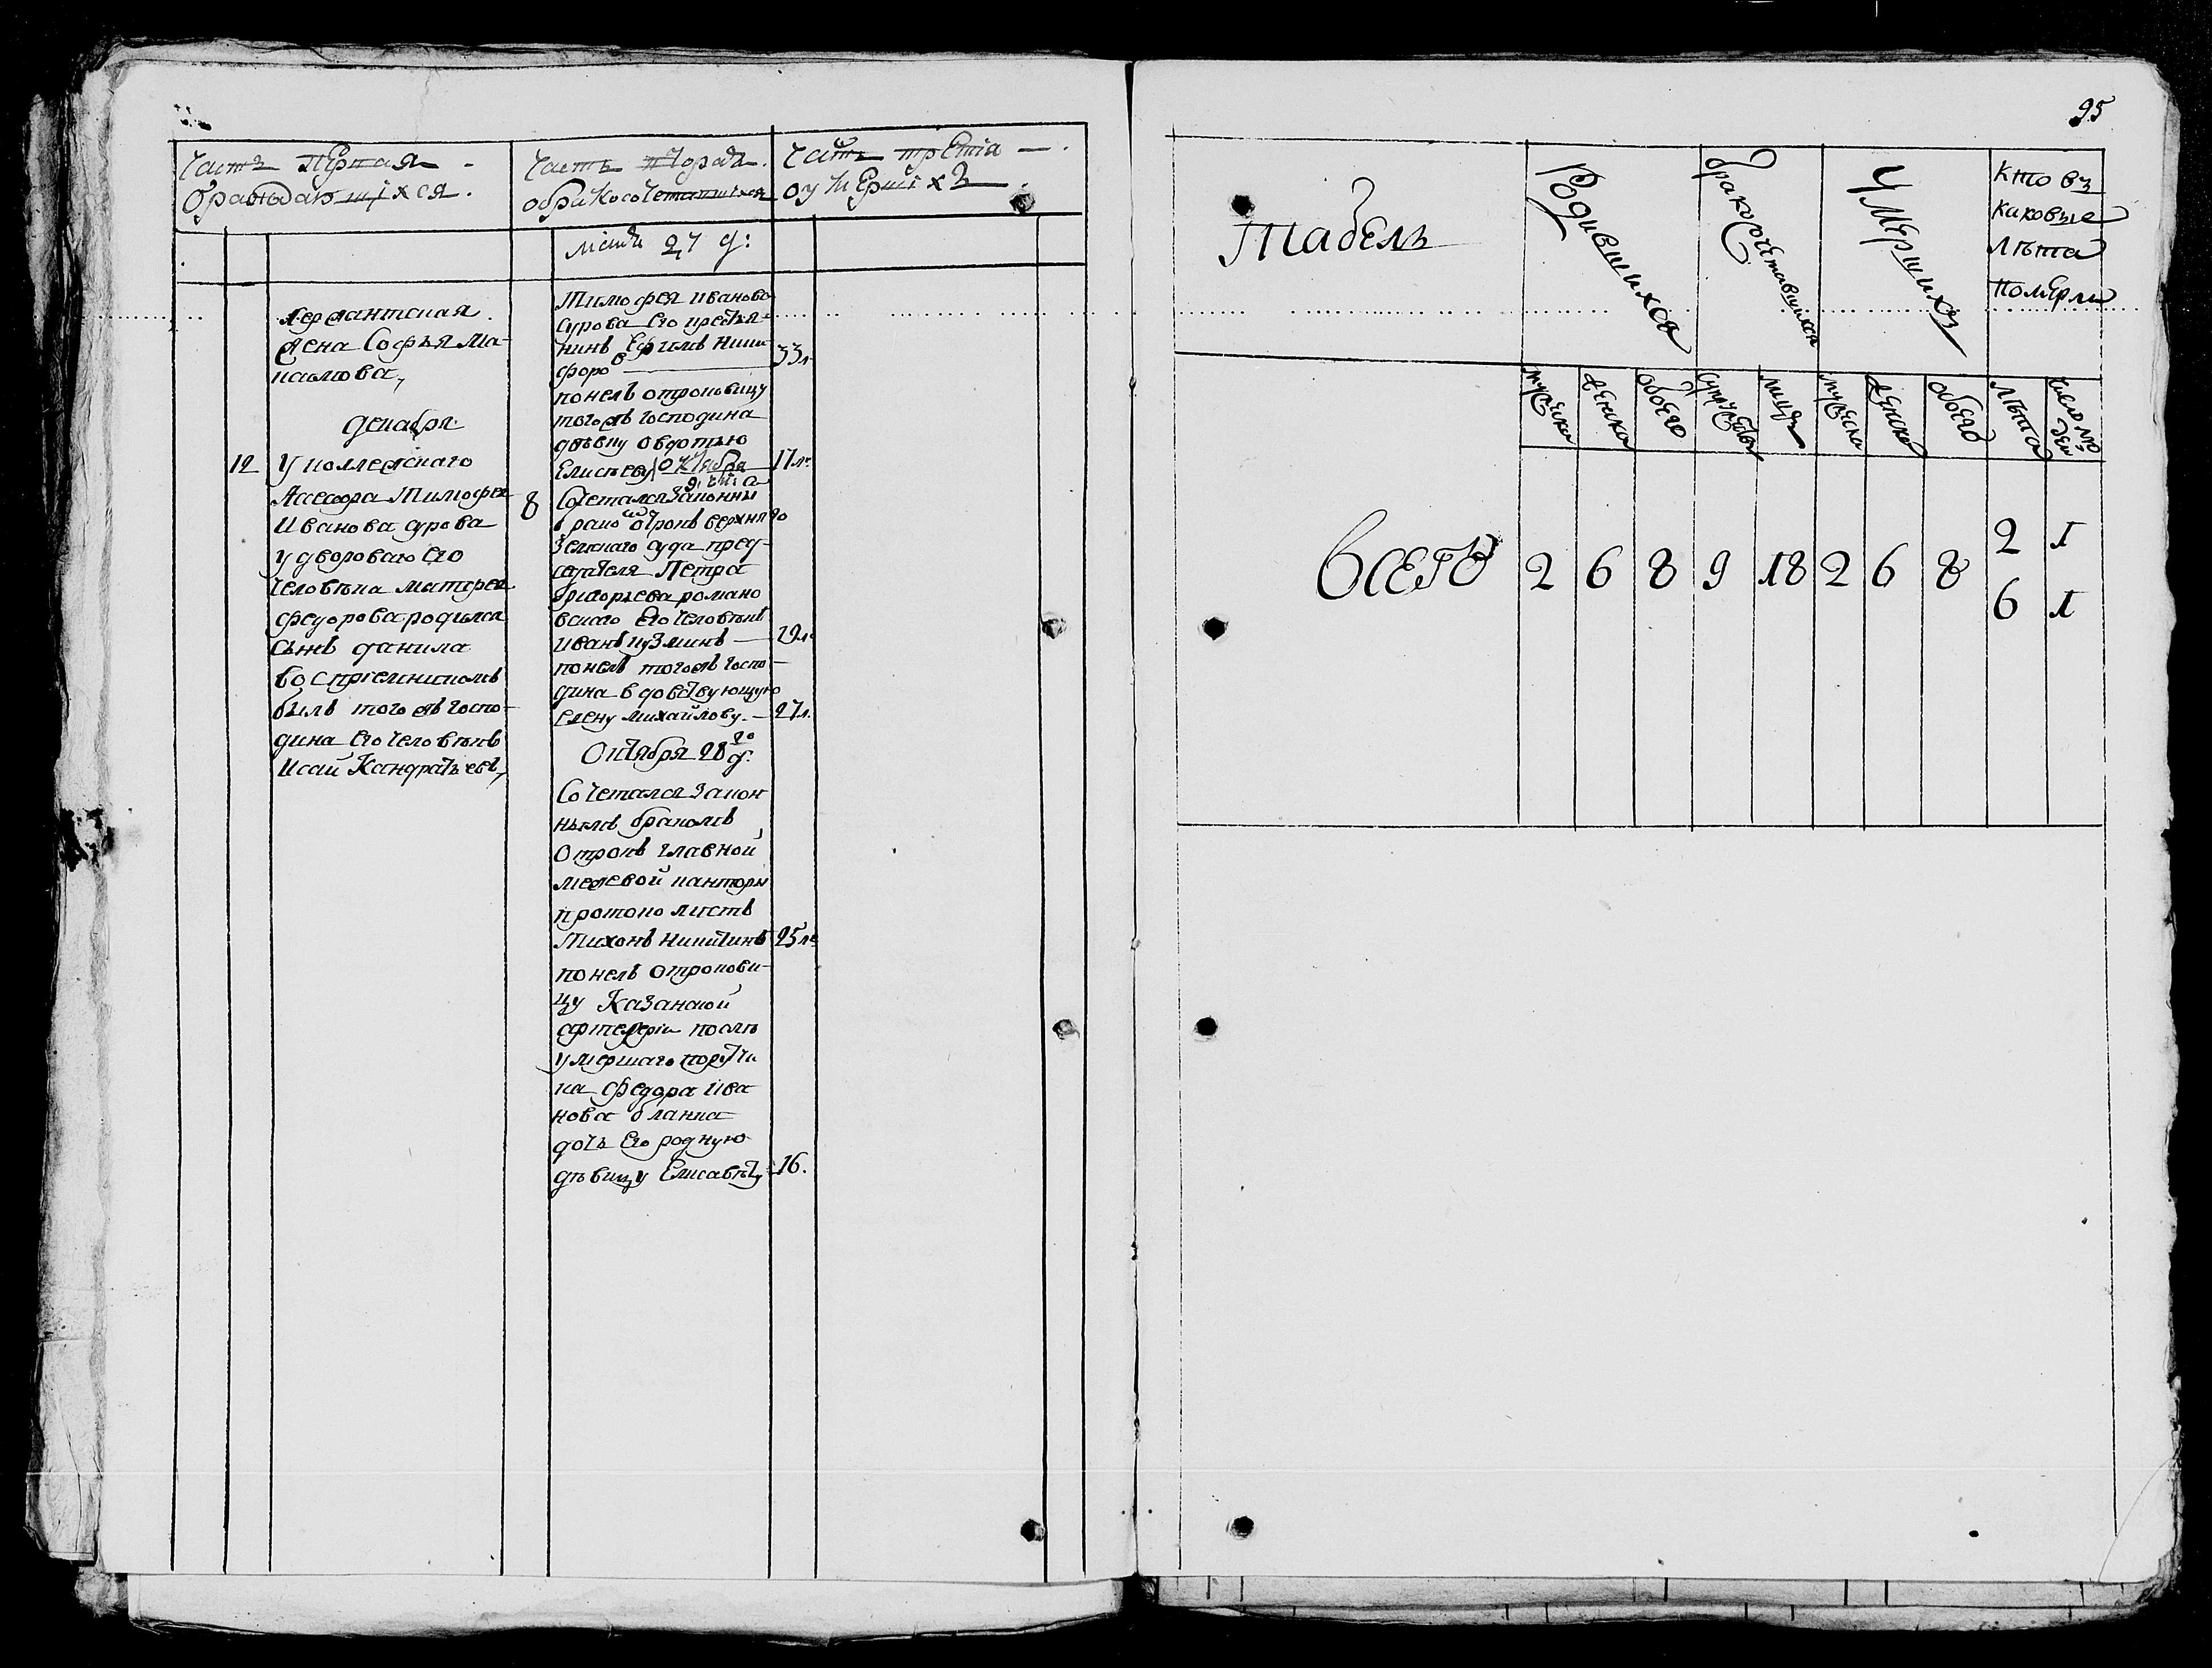 Часть первая
О раждающихся.
Часть вторая
о бракосочетавшихся
Часть третіа
о умершихъ
27 д:
сержантская
жена Софья Ма-
каимова,
декабря
12 У коллежскаго
Асессора Тимофея
Иванова сурова
у двороваго его
человѣка матфея
федорова родился
сынъ данила
воспріемникомъ
былъ того жъ госпо-
дина его человѣкъ
Исай Кандратьевъ,
Тимофея иванова
сурова его крестья-
нинъ Ефимъ Ники-
форовъ 33 л
понелъ отроковицу
того жъ господина
дѣвку овдотью
Елисѣеву 17 л
октября 9 числа
8 Сочетался законны
бракомъ отрокъ верхняго
земскаго суда пред-
седателя Петра
григорьева романо
вскаго его человѣкъ
иванъ кузминъ 29 л
понелъ того жъ госпо-
дина вдовствующую
елену михайлову. 27 л.
Октября 28 го д:
Сочетался закон
нымъ бракомъ
отрокъ главной
межевой канторы
протоколистъ
Тихонъ Никитинъ 25 л
понелъ отрокови-
цу Казанской
умершаго поручи
ка федора ива
нова бланка
дочь его родную
дѣвицу Елисавѣту 16.
95
Табель
Родившихся
бракосочетавшихся
Умершихъ
Кто въ
каковые
лѣта
померли
мужеска
женска
обоего
супружествъ
лицъ
мужеска
женска
обоего
лѣта
число людей
всего 2 6 8 9 18 2 6 8
2 1
6 1